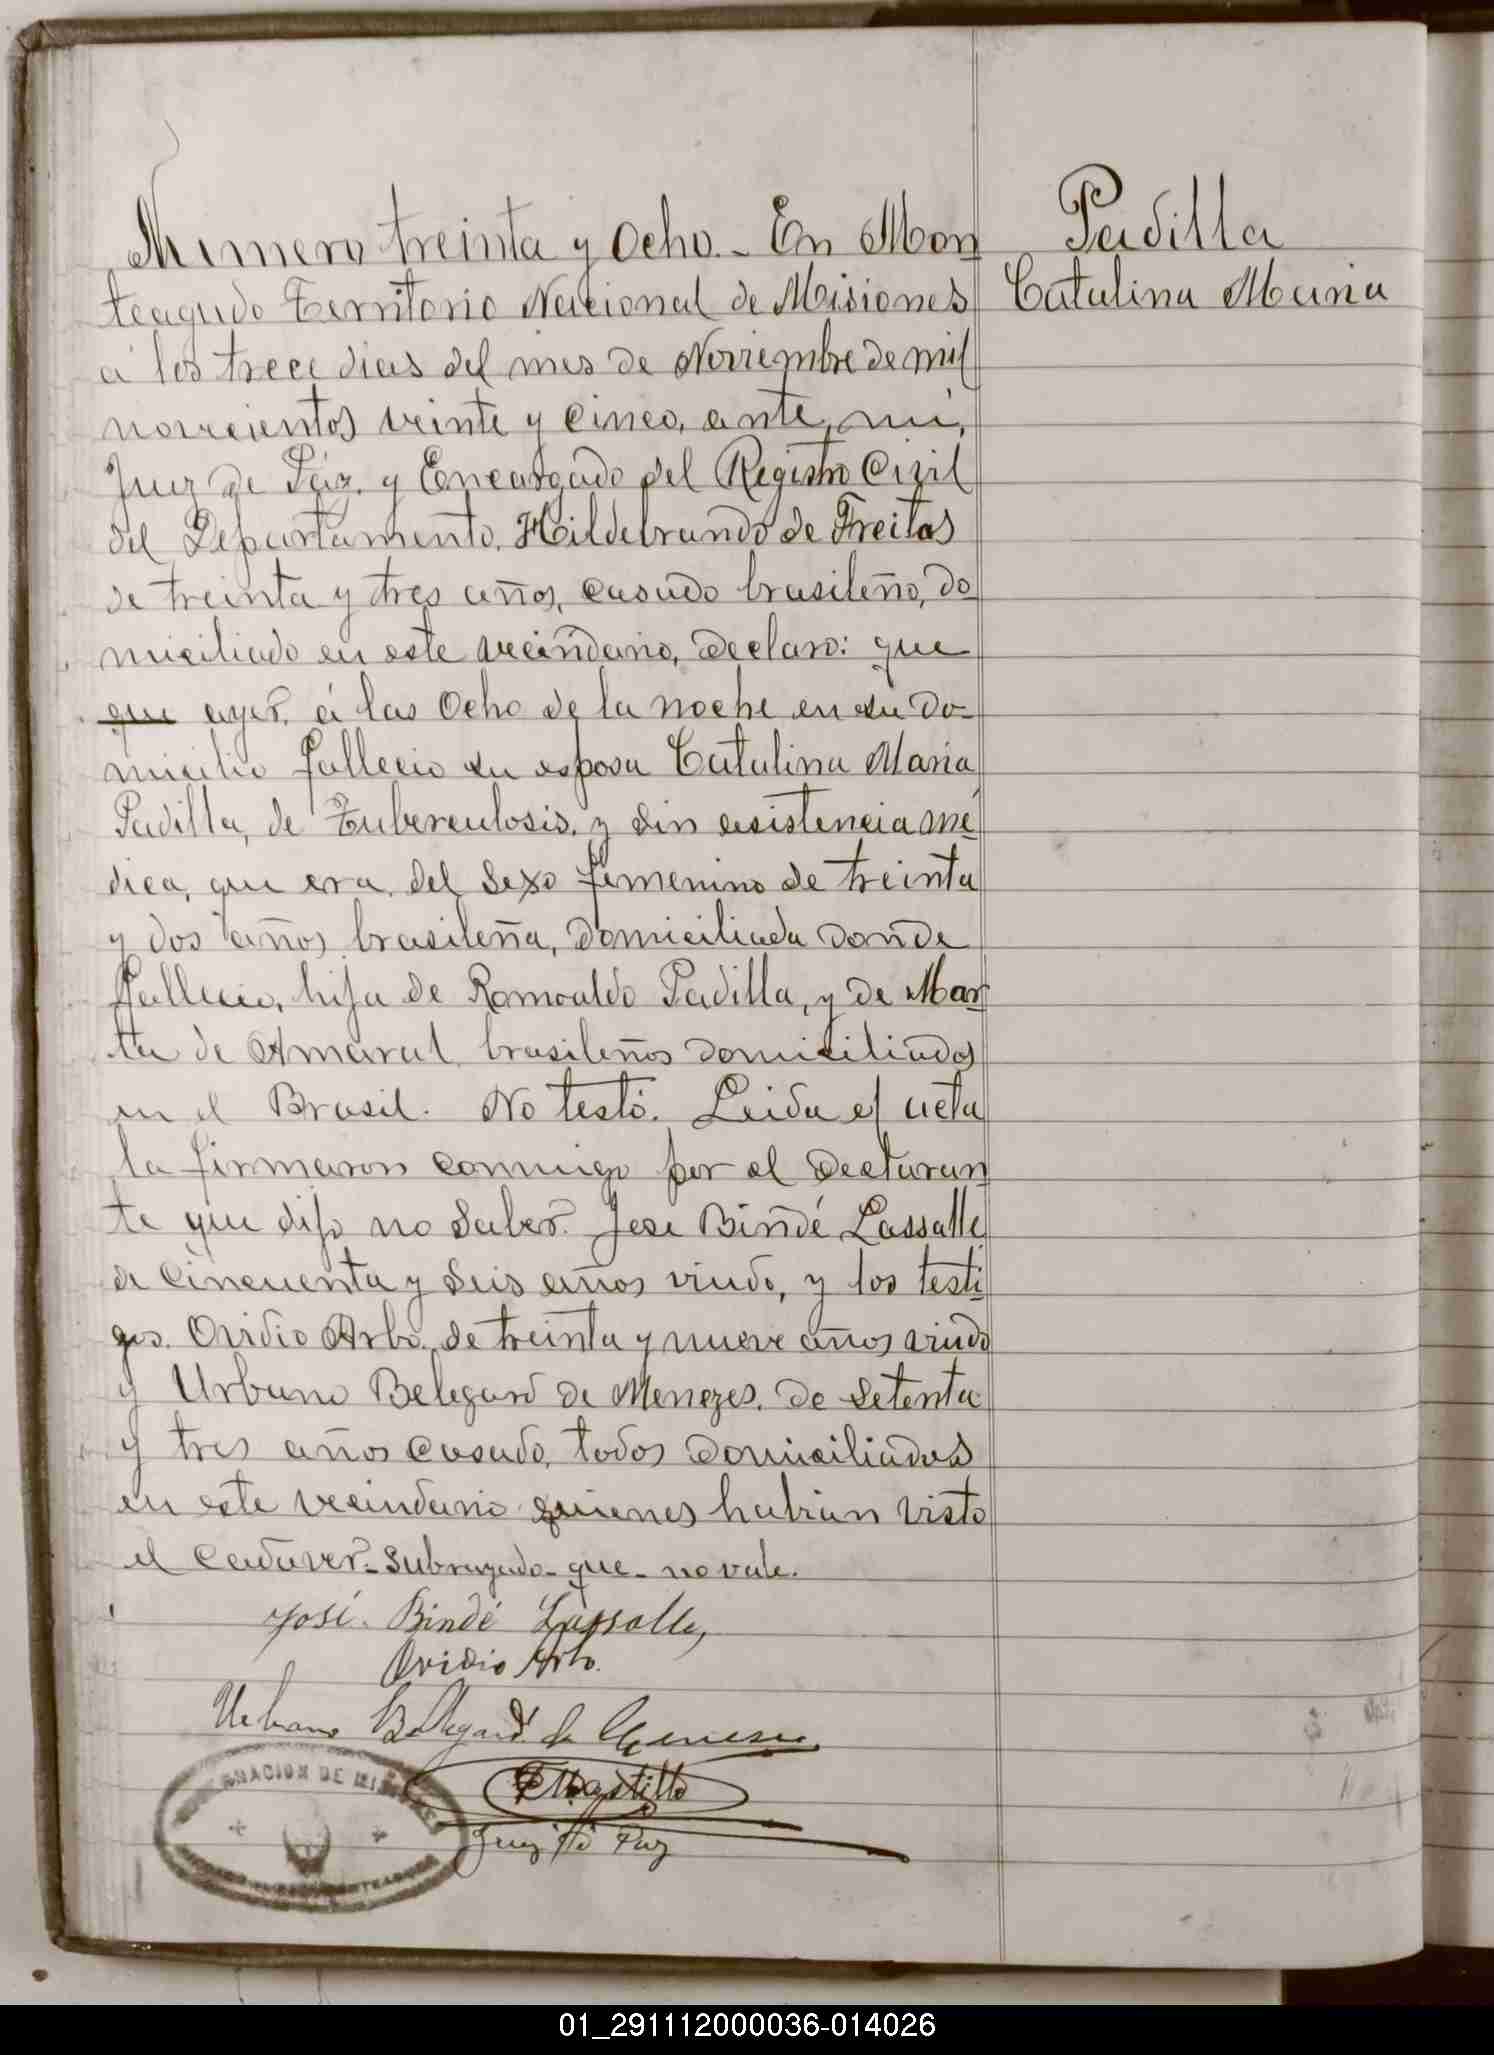 Numero treinta y Ocho.- En Mon
teagudo Territorio Nacional de Misiones
á los trece dias del mes de Noviembre de mil
novecientos veinte y cinco, ante, mí,
Juez de Páz. y Encargado del Registro Civil
del Departamento. Hildebrando de Freitas
de treinta y tres años, casado brasileño, do
miciliado en este vecindario, declaro: que
que ayer. á las Ocho de la noche en su do-
micilio fallecio su esposa Catalina Maria
Padilla, de Tuberculosis. y sin asistencia mé
dica, que era, del sexo femenino de treinta
y dos años, brasileña, domiciliada donde
fallecio, hija de Romoaldo Padilla, y de Mar
ta de Amaral brasileños domiciliados
en el Brasil. No testó. Leida el acta
la firmaron conmigo por el declaran
te que dijo no saber. Jose Bindé Lassalle
de cincuenta y seis años viudo, y los testi
gos. Ovidio Arbo. de treinta y nueve años viudo
y Urbano Belegard de Menezes. de setenta
y tres años casado, todos domiciliados
en este vecindario quienes habian visto
el cadaver.- Subrayado - que - no vale.
José. Bindé Lassalle,
Ovidio Arbo.
Urbano Bellegard de Menezes
Castillo
Juez de Paz
GOBERNACION DE MISIONES
Padilla
Catalina Maria
01_291112000036-014026